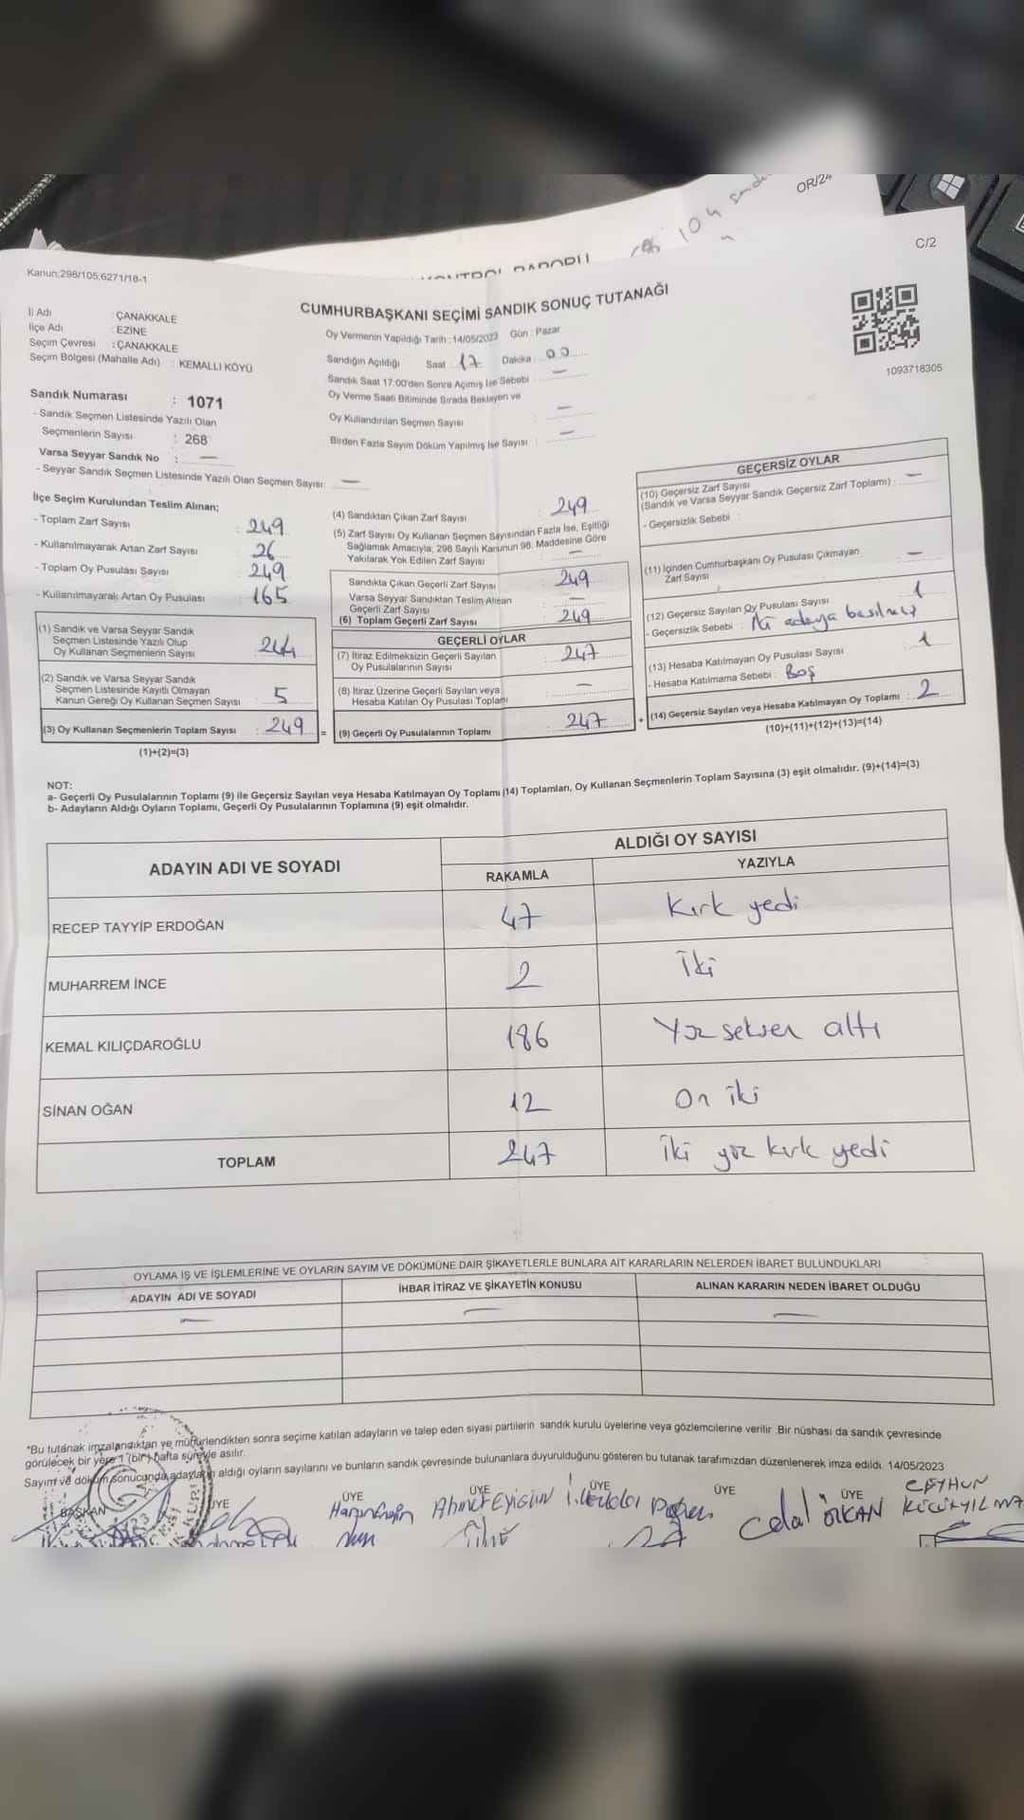 OR/24
104
KONTROL RAPORU
C/2
Kanun:298/105;6271/18-1
CUMHURBAŞKANI SEÇİMİ SANDIK SONUÇ TUTANAĞI
İl Adı : ÇANAKKALE
İlçe Adı : EZİNE
Seçim Çevresi : ÇANAKKALE
Seçim Bölgesi (Mahalle Adı) : KEMALLI KÖYÜ
Sandık Numarası : 1071
- Sandık Seçmen Listesinde Yazılı Olan
Seçmenlerin Sayısı : 268
Varsa Seyyar Sandık No : —
- Seyyar Sandık Seçmen Listesinde Yazılı Olan Seçmen Sayısı: —
Oy Vermenin Yapıldığı Tarih : 14/05/2023 Gün : Pazar
Sandığın Açıldığı Saat : 17 Dakika : 00
Sandık Saat 17:00'den Sonra Açımış İse Sebebi : —
Oy Verme Saati Bitiminde Sırada Bekleyen ve
Oy Kullandırılan Seçmen Sayısı : —
Birden Fazla Sayım Döküm Yapılmış İse Sayısı : —
1093718305
İlçe Seçim Kurulundan Teslim Alınan;
- Toplam Zarf Sayısı : 249
- Kullanılmayarak Artan Zarf Sayısı : 26
- Toplam Oy Pusulası Sayısı : 249
- Kullanılmayarak Artan Oy Pusulası : 165
(1) Sandık ve Varsa Seyyar Sandık
Seçmen Listesinde Yazılı Olup
Oy Kullanan Seçmenlerin Sayısı : 244
(2) Sandık ve Varsa Seyyar Sandık
Seçmen Listesinde Kayıtlı Olmayan
Kanun Gereği Oy Kullanan Seçmen Sayısı : 5
(3) Oy Kullanan Seçmenlerin Toplam Sayısı : 249
(1)+(2)=(3)
(4) Sandıktan Çıkan Zarf Sayısı : 249
(5) Zarf Sayısı Oy Kullanan Seçmen Sayısından Fazla İse, Eşitliği
Sağlamak Amacıyla; 298 Sayılı Kanunun 98. Maddesine Göre
Yakılarak Yok Edilen Zarf Sayısı : —
Sandıkta Çıkan Geçerli Zarf Sayısı : 249
Varsa Seyyar Sandıktan Teslim Alınan
Geçerli Zarf Sayısı : —
(6) Toplam Geçerli Zarf Sayısı : 249
GEÇERLİ OYLAR
(7) İtiraz Edilmeksizin Geçerli Sayılan
Oy Pusulalarının Sayısı : 247
(8) İtiraz Üzerine Geçerli Sayılan veya
Hesaba Katılan Oy Pusulası Toplamı : —
= (9) Geçerli Oy Pusulalarının Toplamı : 247
GEÇERSİZ OYLAR
(10) Geçersiz Zarf Sayısı
(Sandık ve Varsa Seyyar Sandık Geçersiz Zarf Toplamı) : —
- Geçersizlik Sebebi :
(11) İçinden Cumhurbaşkanı Oy Pusulası Çıkmayan
Zarf Sayısı : —
(12) Geçersiz Sayılan Oy Pusulası Sayısı : 1
- Geçersizlik Sebebi : İki adaya basılmış
(13) Hesaba Katılmayan Oy Pusulası Sayısı : 1
- Hesaba Katılmama Sebebi : Boş
+ (14) Geçersiz Sayılan veya Hesaba Katılmayan Oy Toplamı : 2
(10)+(11)+(12)+(13)=(14)
NOT:
a- Geçerli Oy Pusulalarının Toplamı (9) ile Geçersiz Sayılan veya Hesaba Katılmayan Oy Toplamı (14) Toplamları, Oy Kullanan Seçmenlerin Toplam Sayısına (3) eşit olmalıdır. (9)+(14)=(3)
b- Adayların Aldığı Oyların Toplamı, Geçerli Oy Pusulalarının Toplamına (9) eşit olmalıdır.
ADAYIN ADI VE SOYADI
ALDIĞI OY SAYISI
RAKAMLA YAZIYLA
RECEP TAYYİP ERDOĞAN 47 Kırk yedi
MUHARREM İNCE 2 İki
KEMAL KILIÇDAROĞLU 186 Yüz seksen altı
SİNAN OĞAN 12 On iki
TOPLAM 247 İki yüz kırk yedi
OYLAMA İŞ VE İŞLEMLERİNE VE OYLARIN SAYIM VE DÖKÜMÜNE DAİR ŞİKAYETLERLE BUNLARA AİT KARARLARIN NELERDEN İBARET BULUNDUKLARI
ADAYIN ADI VE SOYADI İHBAR İTİRAZ VE ŞİKAYETİN KONUSU ALINAN KARARIN NEDEN İBARET OLDUĞU
— — —
*Bu tutanak imzalandıktan ve mühürlendikten sonra seçime katılan adayların ve talep eden siyasi partilerin sandık kurulu üyelerine veya gözlemcilerine verilir. Bir nüshası da sandık çevresinde
görülecek bir yere 1 (bir) hafta süreyle asılır.
Sayım ve döküm sonucunda adayların aldığı oyların sayılarını ve bunların sandık çevresinde bulunanlara duyurulduğunu gösteren bu tutanak tarafımızdan düzenlenerek imza edildi. 14/05/2023
BAŞKAN ÜYE ÜYE ÜYE ÜYE ÜYE ÜYE
Celal ÖRKAN CEYHUN
KÜÇÜKYILMAZ